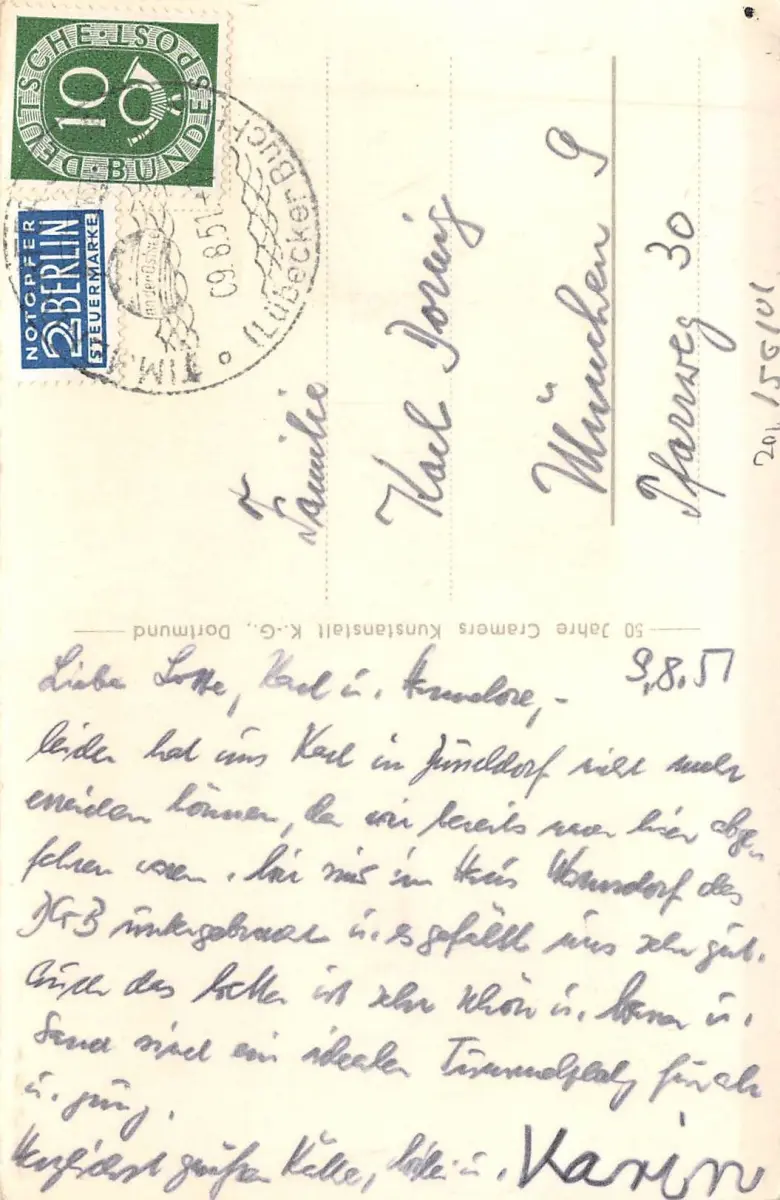 DEUTSCHE·POST·
10
·BUNDES
NOTOPFER
2 BERLIN
STEUERMARKE
TIM
09.8.51
(Lübecker Buch
Familie
Karl Dornig
München 9
Pfarrweg 30
50 Jahre Cramers Kunstanstalt K.-G., Dortmund
9.8.51
Liebe Lotte, Karl u. Hannelore,-
leider hat uns Karl in Düsseldorf nicht mehr
erreichen können, da wir bereits nach hier abge-
fahren waren. Wir sind im Haus des
DGB untergebracht u. es gefällt uns sehr gut.
Auch das Wetter ist sehr schön u. Wasser u.
Sand sind ein idealer Tummelplatz für alt
u. jung.
Herzlichst grüßen Käthe, u. Karin